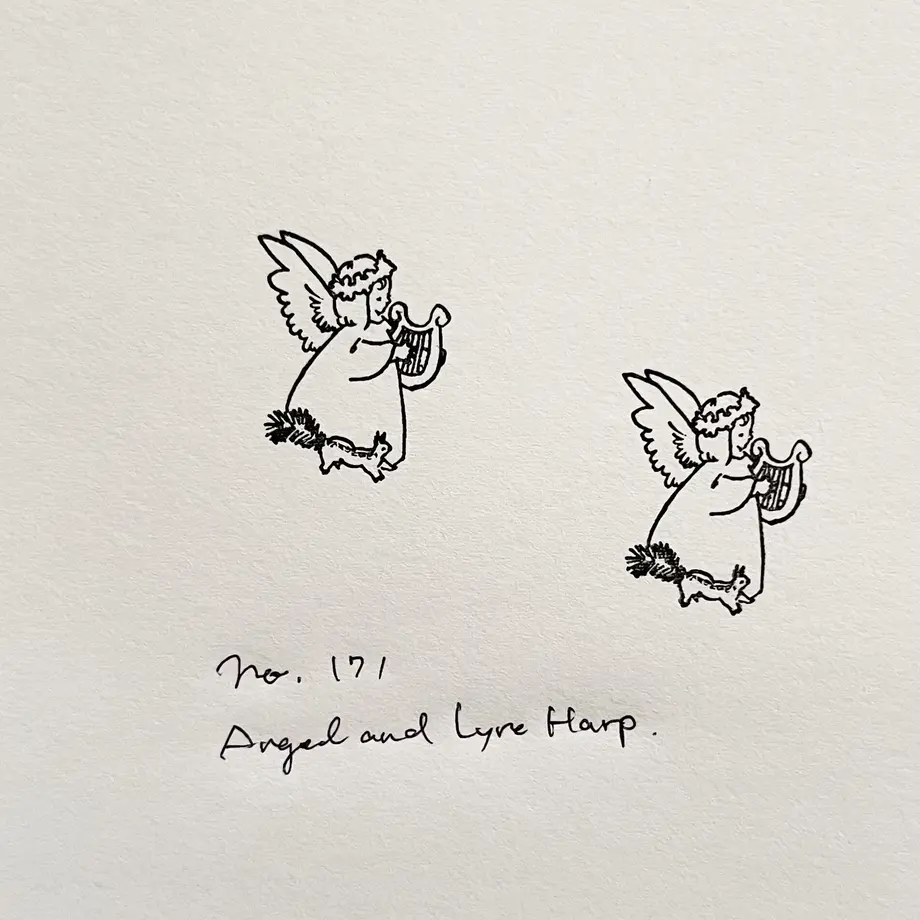 No. 171
Angel and Lyre Harp.